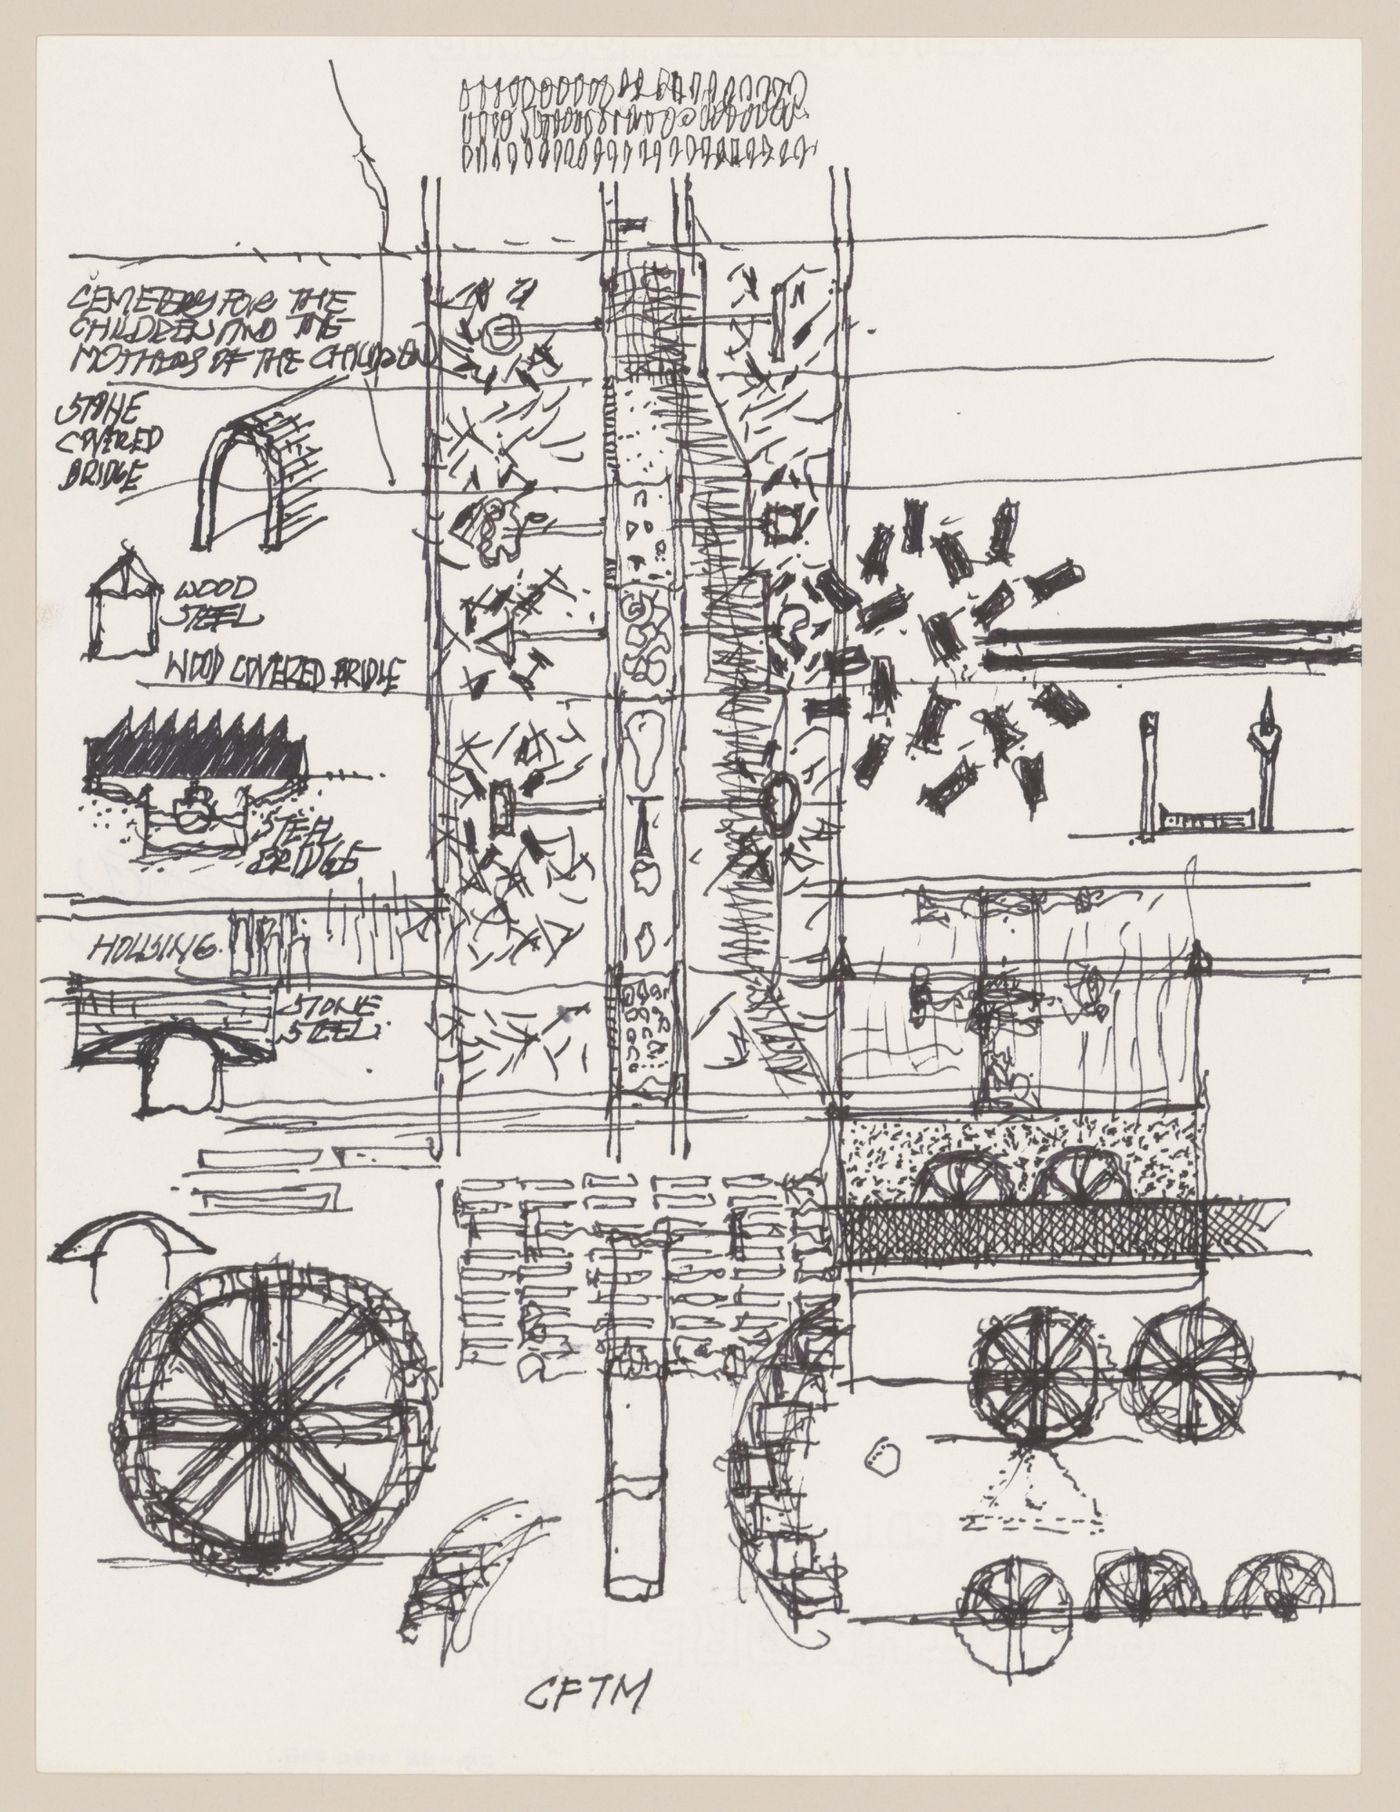 CEMETERY FOR THE
CHILDREN AND THE
MOTHERS OF THE CHILDREN
STONE
COVERED
BRIDGE
WOOD
STEEL
WOOD COVERED BRIDGE
STEEL
BRIDGE
HOUSING
STONE
STEEL
CFTM